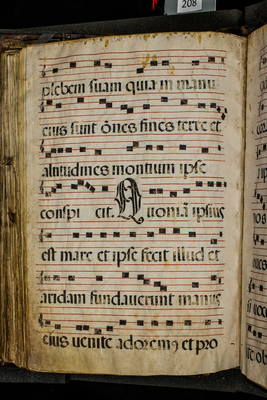 208
plebem suam quia in manu
eius sunt oēs fines terre et
altitudines montium ipse
conspi cit. Quoniā ipsius
est mare et ipse fecit illud et
aridam fundaverunt manus
eius venite adoremꝰ et pro